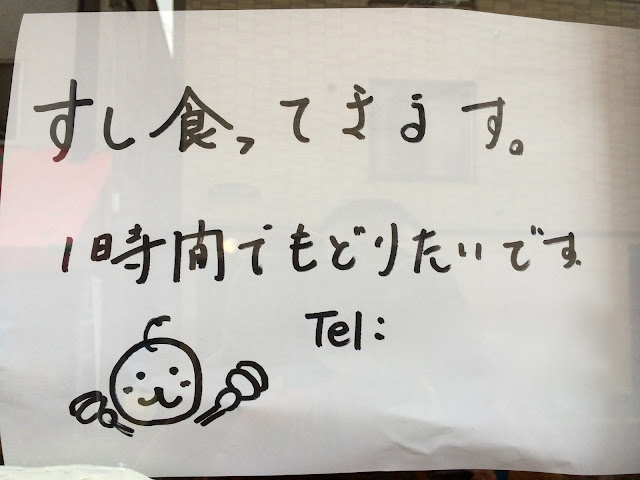 すし食ってきます。
1時間でもどりたいです
Tel: